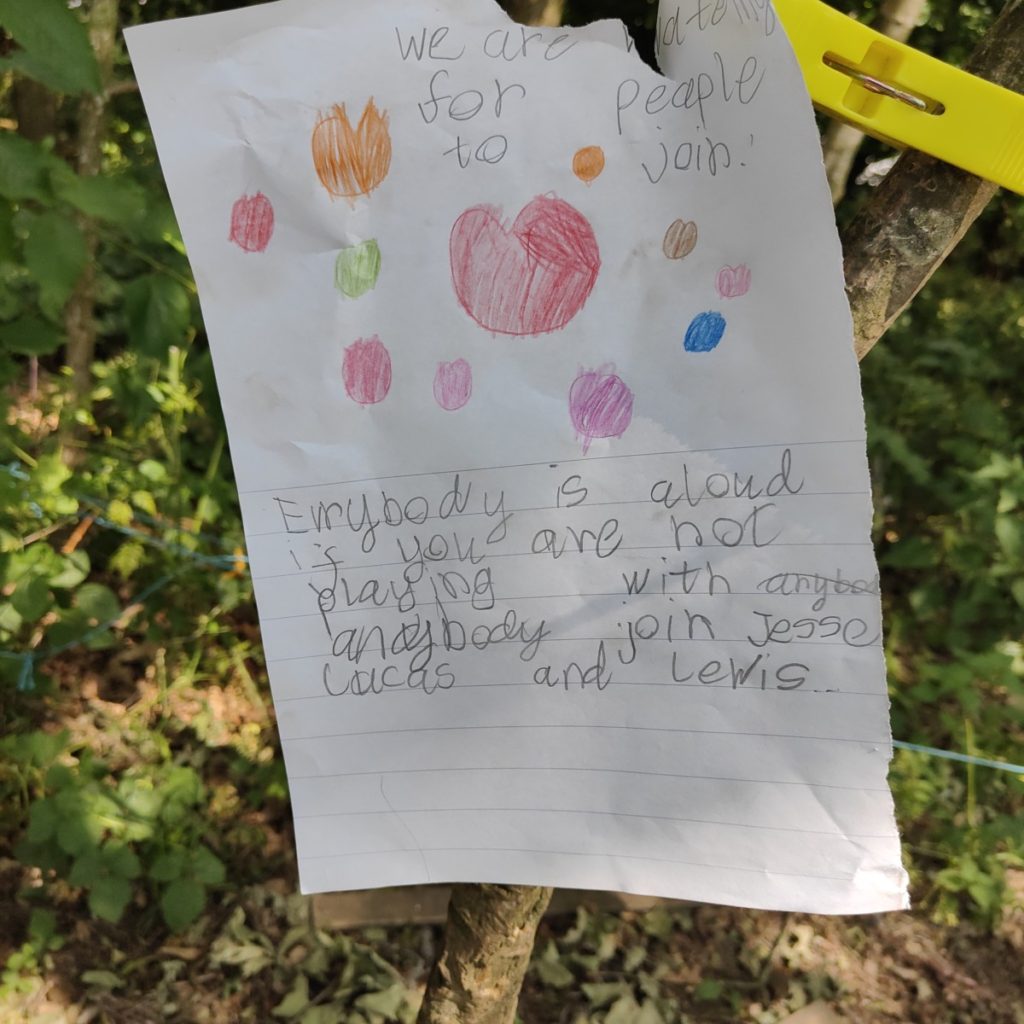 we are
for peaple
to join!
Evrybody is aloud
if you are not
playing with anybo
andybody join Jesse
Lucas and Lewis...